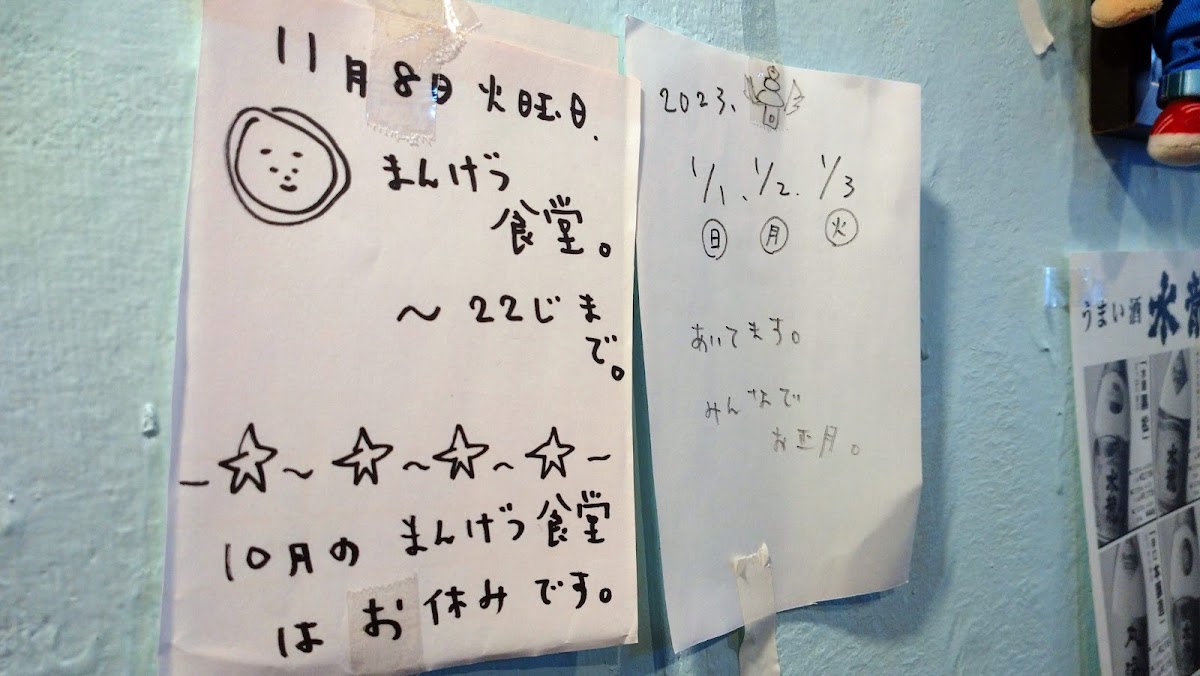 11月8日 火旺日.
まんげつ
食堂。
〜22じま
で。
10月の まんげつ食堂
は お休みです。
2023.
1/1、1/2. 1/3
日 月 火
あいてます。
みんなで
お正月。
うまい酒